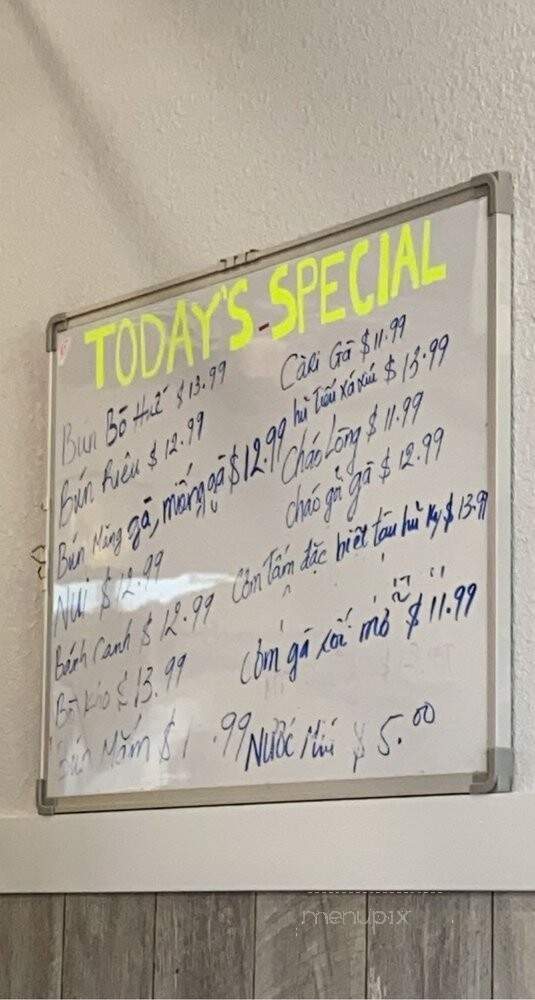 TODAY'S SPECIAL
Bún Bò Huế $13.99
Bún Riêu $12.99
Bún Măng gà, mống gà $12.99
NUI $12.99
Bánh Canh $12.99
Bò Kho $13.99
Bún Mắm $1 .99
Càri Gà $11.99
hủ tiếu xá xíu $13.99
Cháo Lòng $11.99
cháo gỏi gà $12.99
Cơm Tấm đặc biệt tàu hủ ky $13.99
Cơm gà xối mỡ $11.99
Nước Mía $5.00
menupix